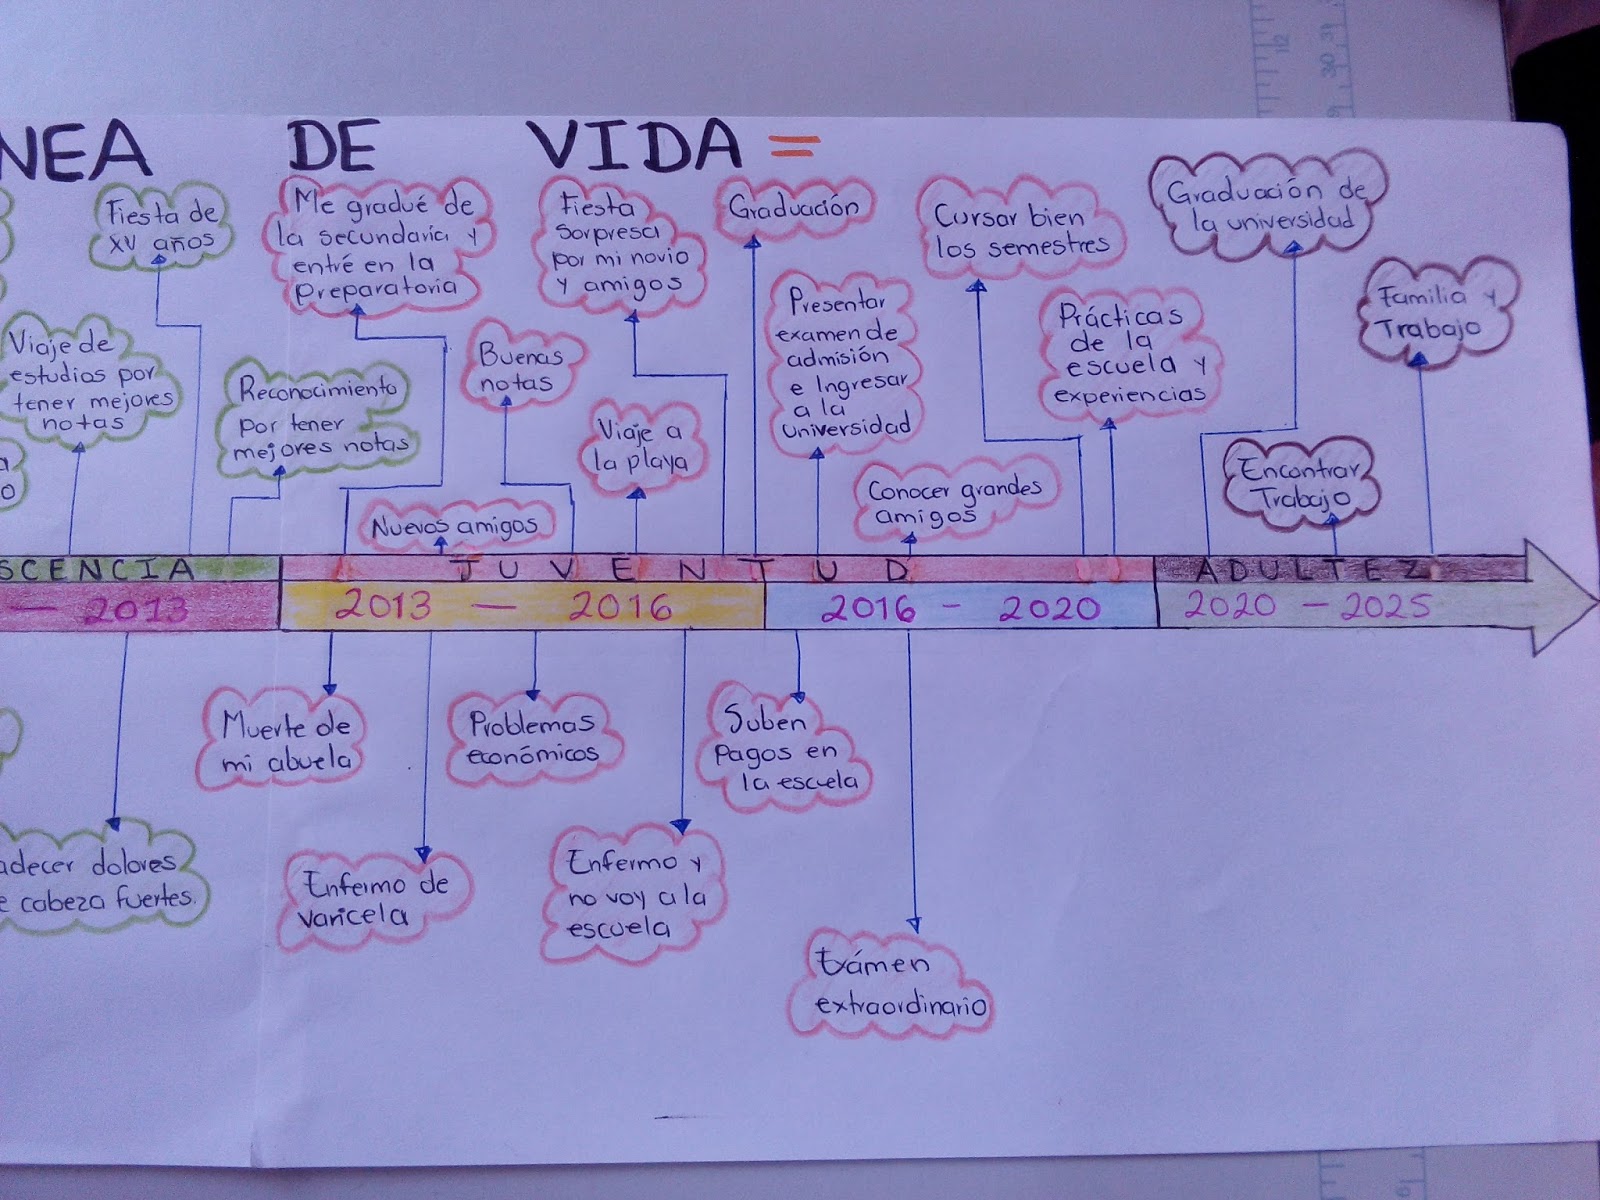 NEA DE VIDA =
Fiesta de
XV años
Me gradué de
la secundaria y
entré en la
preparatoria
Fiesta
sorpresa
por mi novio
y amigos
Graduación
Cursar bien
los semestres
Graduación de
la universidad
Viaje de
estudios por
tener mejores
notas
Reconocimiento
por tener
mejores notas
Buenas
notas
Viaje a
la playa
Presentar
examen de
admisión
e Ingresar
a la
universidad
Prácticas
de la
escuela y
experiencias
Familia y
Trabajo
a
o
Nuevos amigos
Conocer grandes
amigos
Encontrar
Trabajo
SCENCIA
JUVENTUD
ADULTEZ
— 2013
2013 — 2016
2016 - 2020
2020 - 2025
Muerte de
mi abuela
Problemas
económicos
Suben
Pagos en
la escuela
adecer dolores
e cabeza fuertes.
Enfermo de
varicela
Enfermo y
no voy a la
escuela
Exámen
extraordinario
12
30 31